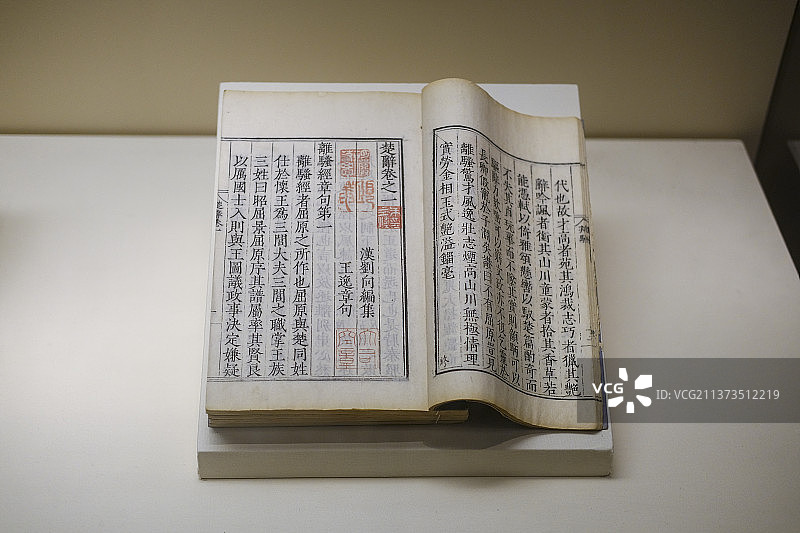 代也故才高者菀其鴻裁志巧者獵其艷
辭吟諷者銜其山川童蒙者拾其香草若
能憑軾以倚雅頌懸轡以馭楚篇酌奇而
不失其真翫華而不墜其實則顧盼可以
驅辭力欬唾可以窮文致亦不復乞靈於
長卿假寵於子淵矣讚曰不有屈原豈見
離騷驚才風逸壯志煙高山川無極情理
實勞金相玉式艷溢錙毫
楚辭卷之一
漢劉向編集
王逸章句
離騷經章句第一
離騷經者屈原之所作也屈原與楚同姓
仕於懷王爲三閭大夫三閭之職掌王族
三姓曰昭屈景屈原序其譜屬率其賢良
以厲國士入則與王圖議政事決定嫌疑
VCG
视觉中国
VCG211373512219